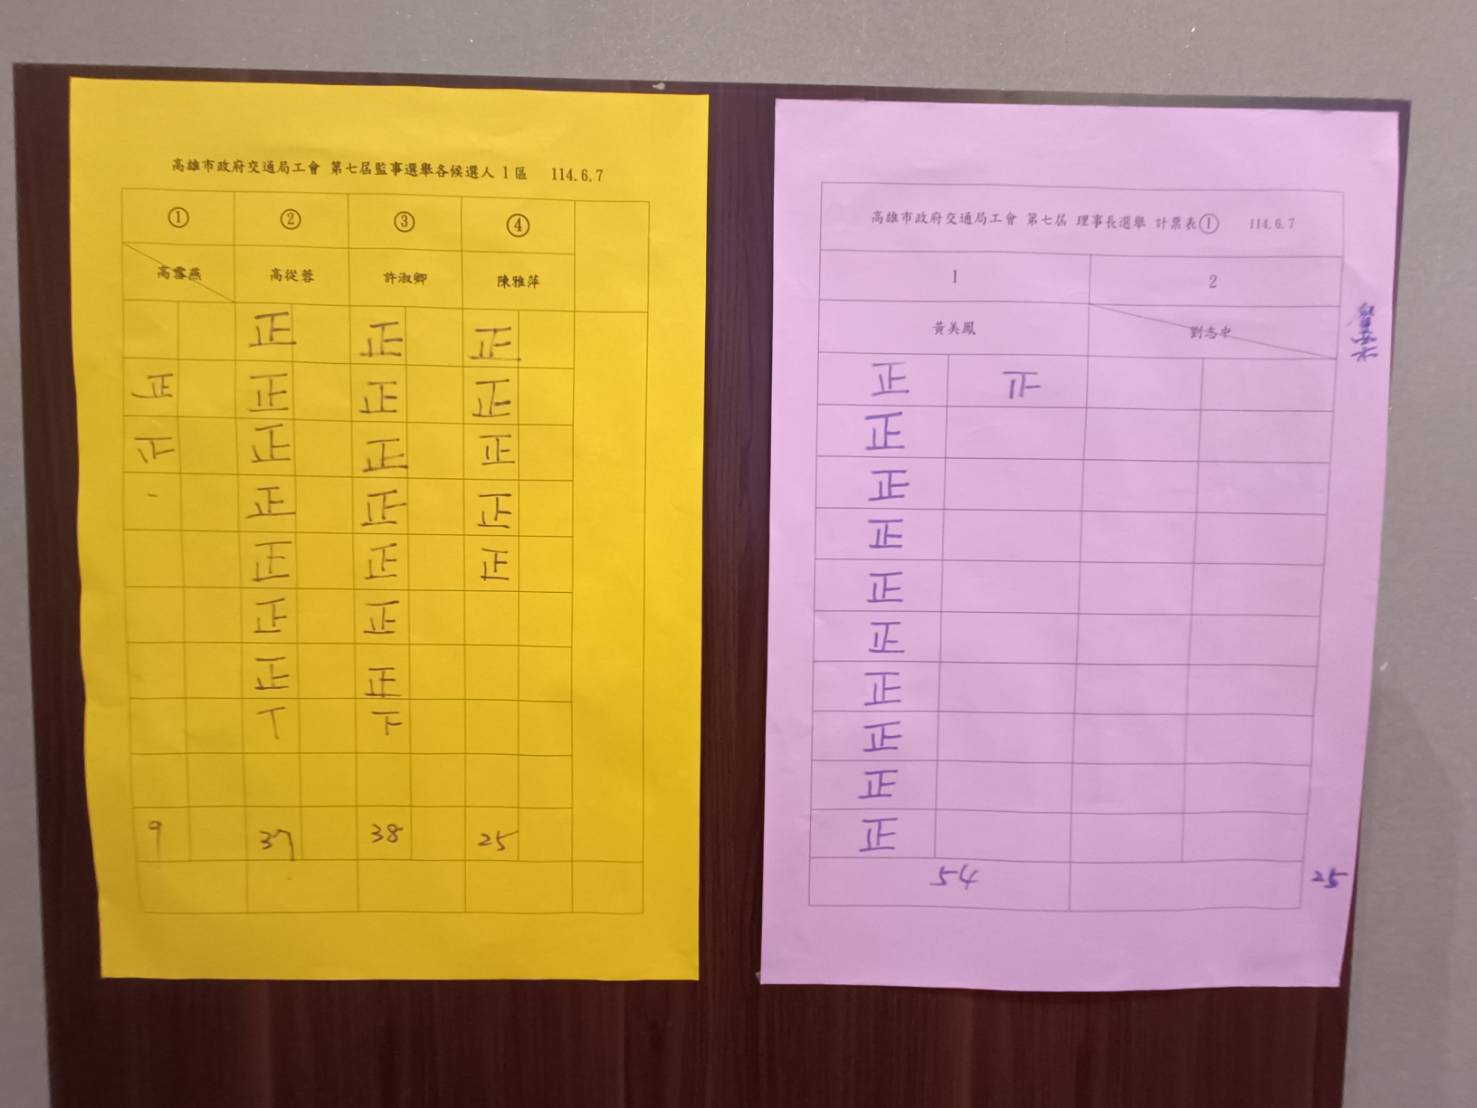 高雄市政府交通局工會 第七屆監事選舉各候選人 1區 114.6.7
① ② ③ ④
高雪燕 高從蓉 許淑卿 陳雅萍
正 正 正
正 正 正 正
正 正 正
正 正 正
正 正 正
正 正
正 正
9 37 38 25
高雄市政府交通局工會 第七屆 理事長選舉 計票表① 114.6.7
1 2
黃美鳳 劉志忠
正
正
正
正
正
正
正
正
正
正
54
廢票
25